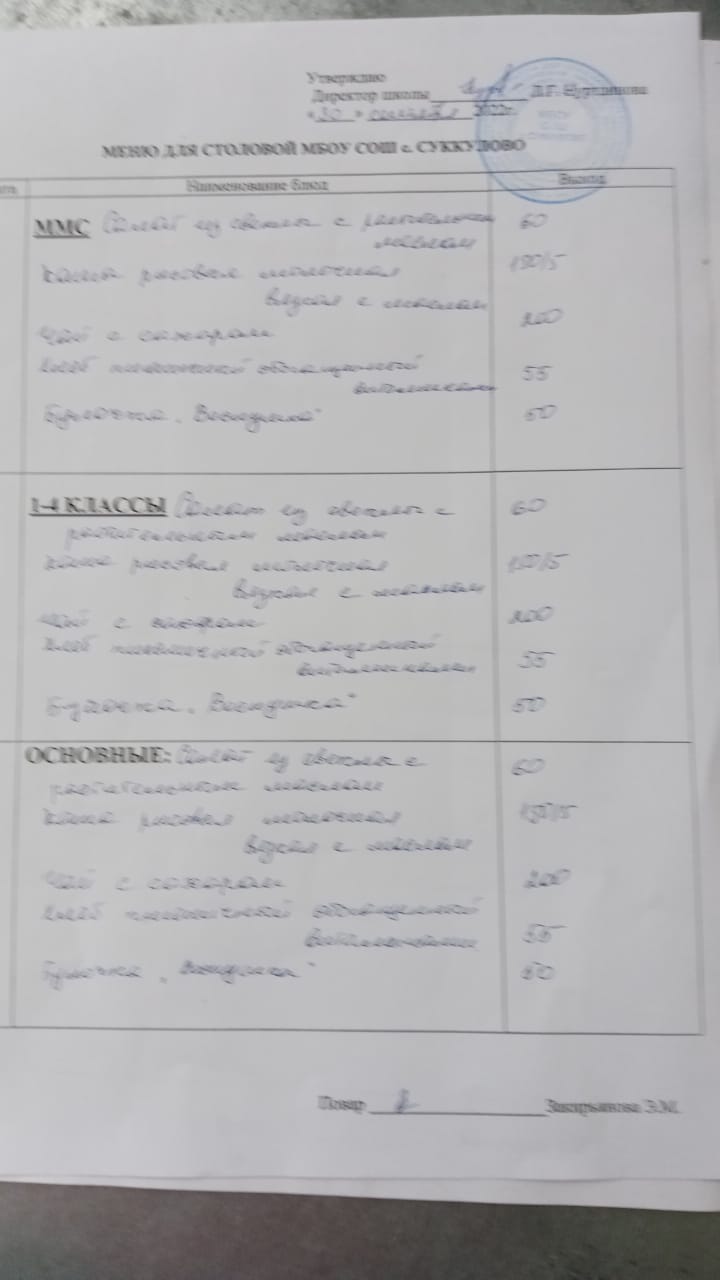 Утверждаю
Директор школы Л.Г. Нурдинова
«30» сентября 2022г.
МЕНЮ ДЛЯ СТОЛОВОЙ МБОУ СОШ с. СУККУЛОВО
Наименование блюд Выход
ММС Салат из свеклы с растительным 60
маслом
Каша рисовая молочная 150/5
вязкая с маслом
Чай с сахаром 200
Хлеб пшеничный обогащенный 55
витаминами
Булочка "Веснушка" 50
1-4 КЛАССЫ Салат из свеклы с 60
растительным маслом
Каша рисовая молочная 150/5
вязкая с маслом
Чай с сахаром 200
Хлеб пшеничный обогащенный
витаминами 55
Булочка "Веснушка" 50
ОСНОВНЫЕ: Салат из свеклы с 60
растительным маслом
Каша рисовая молочная 150/5
вязкая с маслом
Чай с сахаром 200
Хлеб пшеничный обогащенный
витаминами 55
Булочка "Веснушка" 50
Повар Закирьянова Э.М.